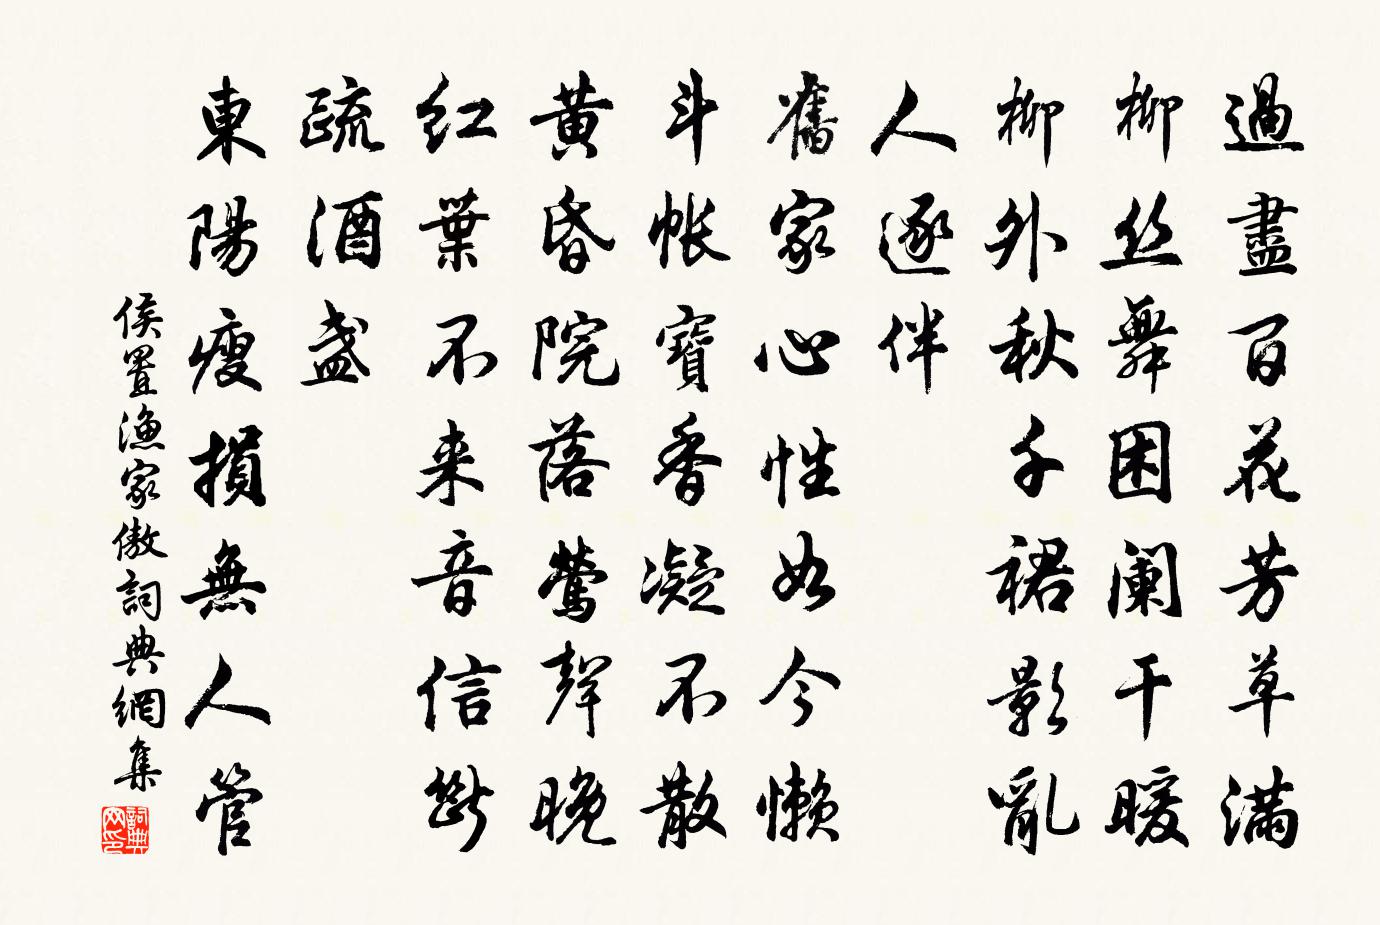 過盡百花芳草滿
柳丝舞困阑干暖
柳外秋千裙影亂
人逐伴
舊家心性如今懒
斗帐寶香凝不散
黄昏院落鶯聲晚
红葉不来音信断
疏酒盏
東陽瘦損無人管
侯置漁家傲詞典網集
詞典网印